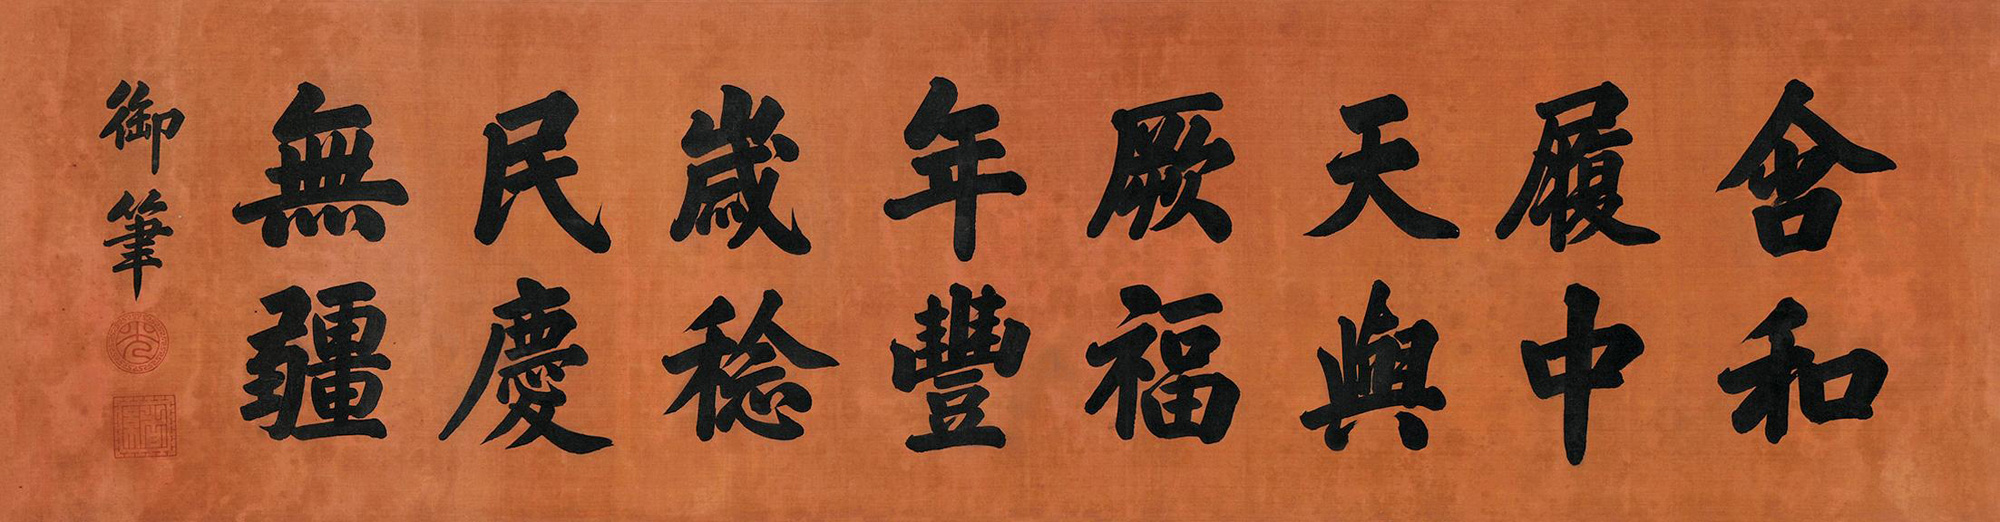 含和
履中
天與
厥福
年豐
歲稔
民慶
無疆
御筆